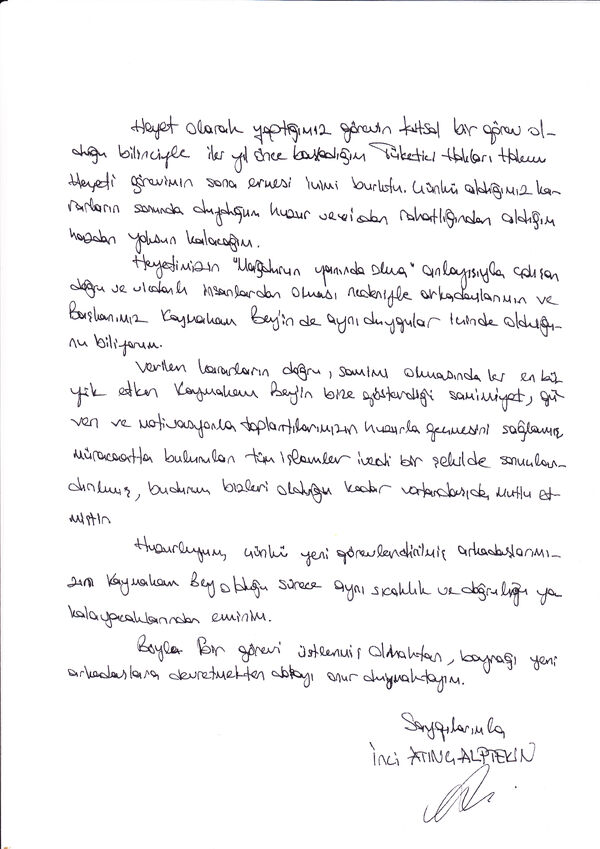 Heyet olarak yaptığımız görevin kutsal bir görev ol-
duğu bilinciyle iki yıl önce başladığım Tüketici Hakları Hakem
Heyeti görevimin sona ermesi içimi burktu. Çünkü aldığımız ka-
rarların sonunda duyduğum huzur ve vicdan rahatlığından aldığım
hazdan yoksun kalacağım.
Heyetimizin "Mağdurun yanında olma" anlayışıyla çalışan
doğru ve vicdanlı insanlardan olması nedeniyle arkadaşlarımın ve
Başkanımız Kaymakam Bey'in de aynı duygular içinde olduğu-
nu biliyorum.
Verilen kararların doğru, samimi olmasında ki en bü
yük etken Kaymakam Bey'in bize gösterdiği samimiyet, gü
ven ve motivasyonla toplantılarımızın huzurla geçmesini sağlamış
müracaatta bulunulan tüm işlemler ivedi bir şekilde sonuçlan-
dırılmış, bu durum bizleri olduğu kadar vatandaşıda mutlu et-
miştir.
Huzurluyum, çünkü yeni görevlendirilmiş arkadaşlarımı-
zın Kaymakam Bey olduğu sürece aynı sıcaklık ve doğruluğu ya
kalayacaklarından eminim.
Böyle Bir görevi üstlenmiş olmaktan, bayrağı yeni
arkadaşlara devretmekten dolayı onur duymaktayım.
Saygılarımla
İnci ATINÇ ALPTEKİN